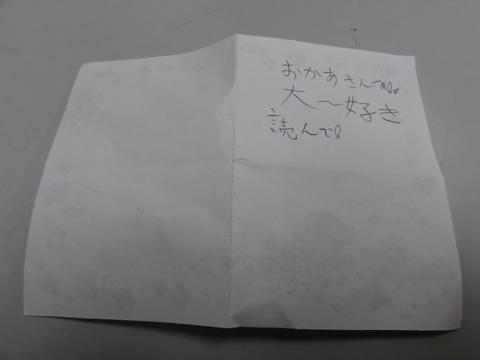 おかあさんへ
大〜好き
読んで!